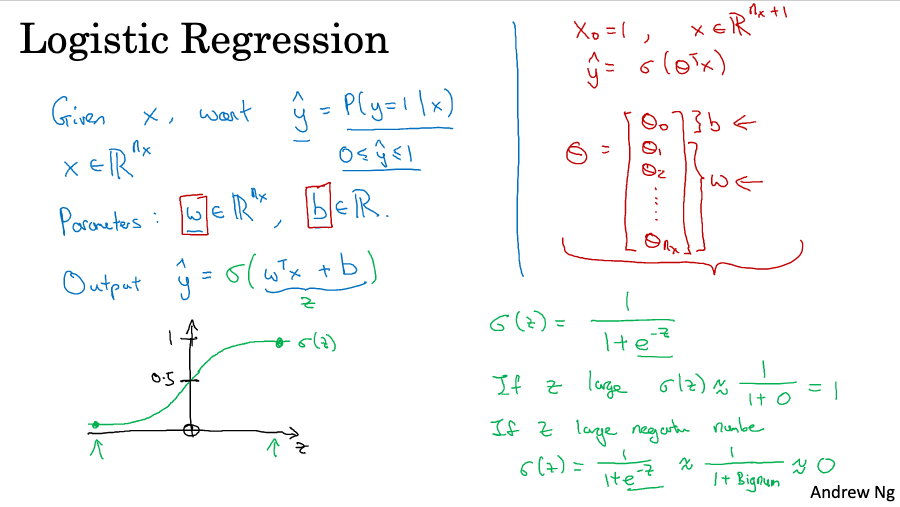 Logistic Regression
Given x, want ŷ = P(y=1|x)
x ∈ ℝ^{n_x}
0 ≤ ŷ ≤ 1
Parameters: w ∈ ℝ^{n_x}, b ∈ ℝ.
Output ŷ = σ(w^T x + b)
z
1
σ(z)
0.5
z
x_0 = 1, x ∈ ℝ^{n_x+1}
ŷ = σ(θ^T x)
θ = [θ_0 θ_1 θ_2 ⋮ θ_{n_x}]
} b ←
} w ←
σ(z) = 1/(1+e^{-z})
If z large σ(z) ≈ 1/(1+0) = 1
If z large negative number
σ(z) = 1/(1+e^{-z}) ≈ 1/(1+Bignum) ≈ 0
Andrew Ng